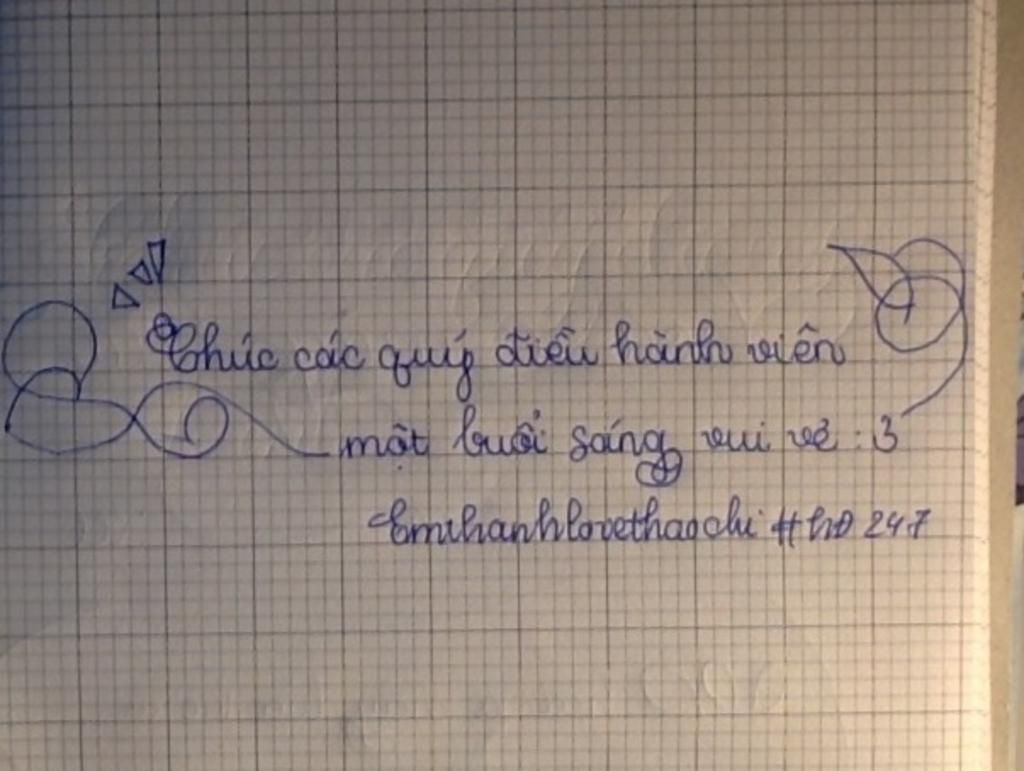 Chúc các quý điều hành viên
một buổi sáng vui vẻ :3
Emchanhlovethaochi #h0 247